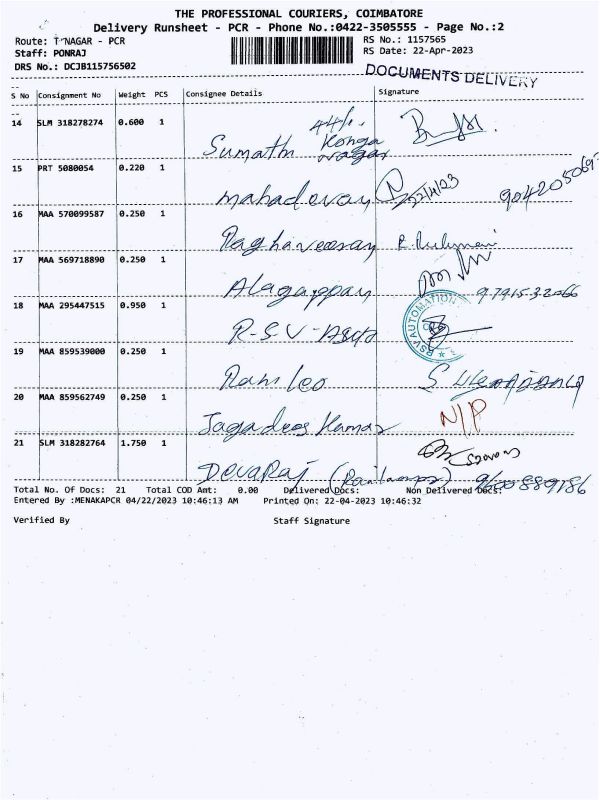 THE PROFESSIONAL COURIERS, COIMBATORE
Delivery Runsheet - PCR - Phone No.:0422-3505555 - Page No.:2
Route: T NAGAR - PCR RS No.: 1157565
Staff: PONRAJ RS Date: 22-Apr-2023
DRS No.: DCJB115756502
DOCUMENTS DELIVERY
S No Consignment No Weight PCS Consignee Details Signature
14 SLM 318278274 0.600 1
Sumathi Konga nagar
15 PRT 5080054 0.220 1
mahadevan 22/4/23
16 MAA 570099587 0.250 1
17 MAA 569718890 0.250 1
Alagappan
18 MAA 295447515 0.950 1
R-S-V- RSV AUTOMATION
19 MAA 859539000 0.250 1
Ram Leo
20 MAA 859562749 0.250 1
N/P
21 SLM 318282764 1.750 1
DevaRaj
Total No. Of Docs: 21 Total COD Amt: 0.00 Delivered Docs: Non Delivered Docs:
Entered By :MENAKAPCR 04/22/2023 10:46:13 AM Printed On: 22-04-2023 10:46:32
Verified By Staff Signature